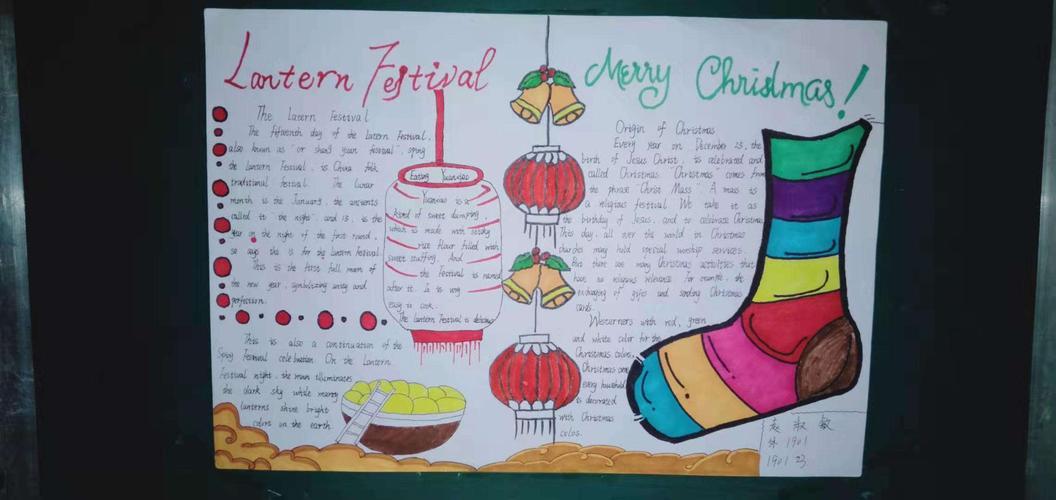 Lantern Festival
The Latern Festival
The fifteenth day of the Latern Festival,
also known as "or shang yuan festival", sping
the lantern Festival, is China folk
traditional festival. The lunar
month is the January, the ancients
called it "the night" and 15, is the
year on the night of the first round,
so says this is for the lantern Festival.
This is the first full moon of
the new year, symbolizing unity and
perfection.
This is also a continuation of the
Sping Festival celebration. On the Lantern
Festival night, the moon illuminates
the dark sky while many
lanterns shine bright
colors on the earth.
Eating Yuanxiao
Yuanxiao is a
kind of sweet dumpling,
which is made with sticky
rice flour filled with
sweet stuffing. And
the Festival is named
after it. It is very
easy to cook.
The lantern Festival is delicious
Merry Christmas!
Origin of Christmas
Every year on December 25, the
birth of Jesus Christ, is celebrated and
called Christmas. "Christmas" comes from
the phrase "Christ Mass". A mass is
a religious festival. We take it as
the birthday of Jesus, and to celebrate Christmas
This day, all over the world in Christmas
churches many hold special worship services.
But there are many Christmas activities that
have no religious relevance. For example, the
exchanging of gifts and sending Christmas
cards.
Westurners with red, green
and white color for the
Christmas colors,
Christmas one
every household
is decorated
with Christmas
colos.
袁淑敏
1901
1901 23